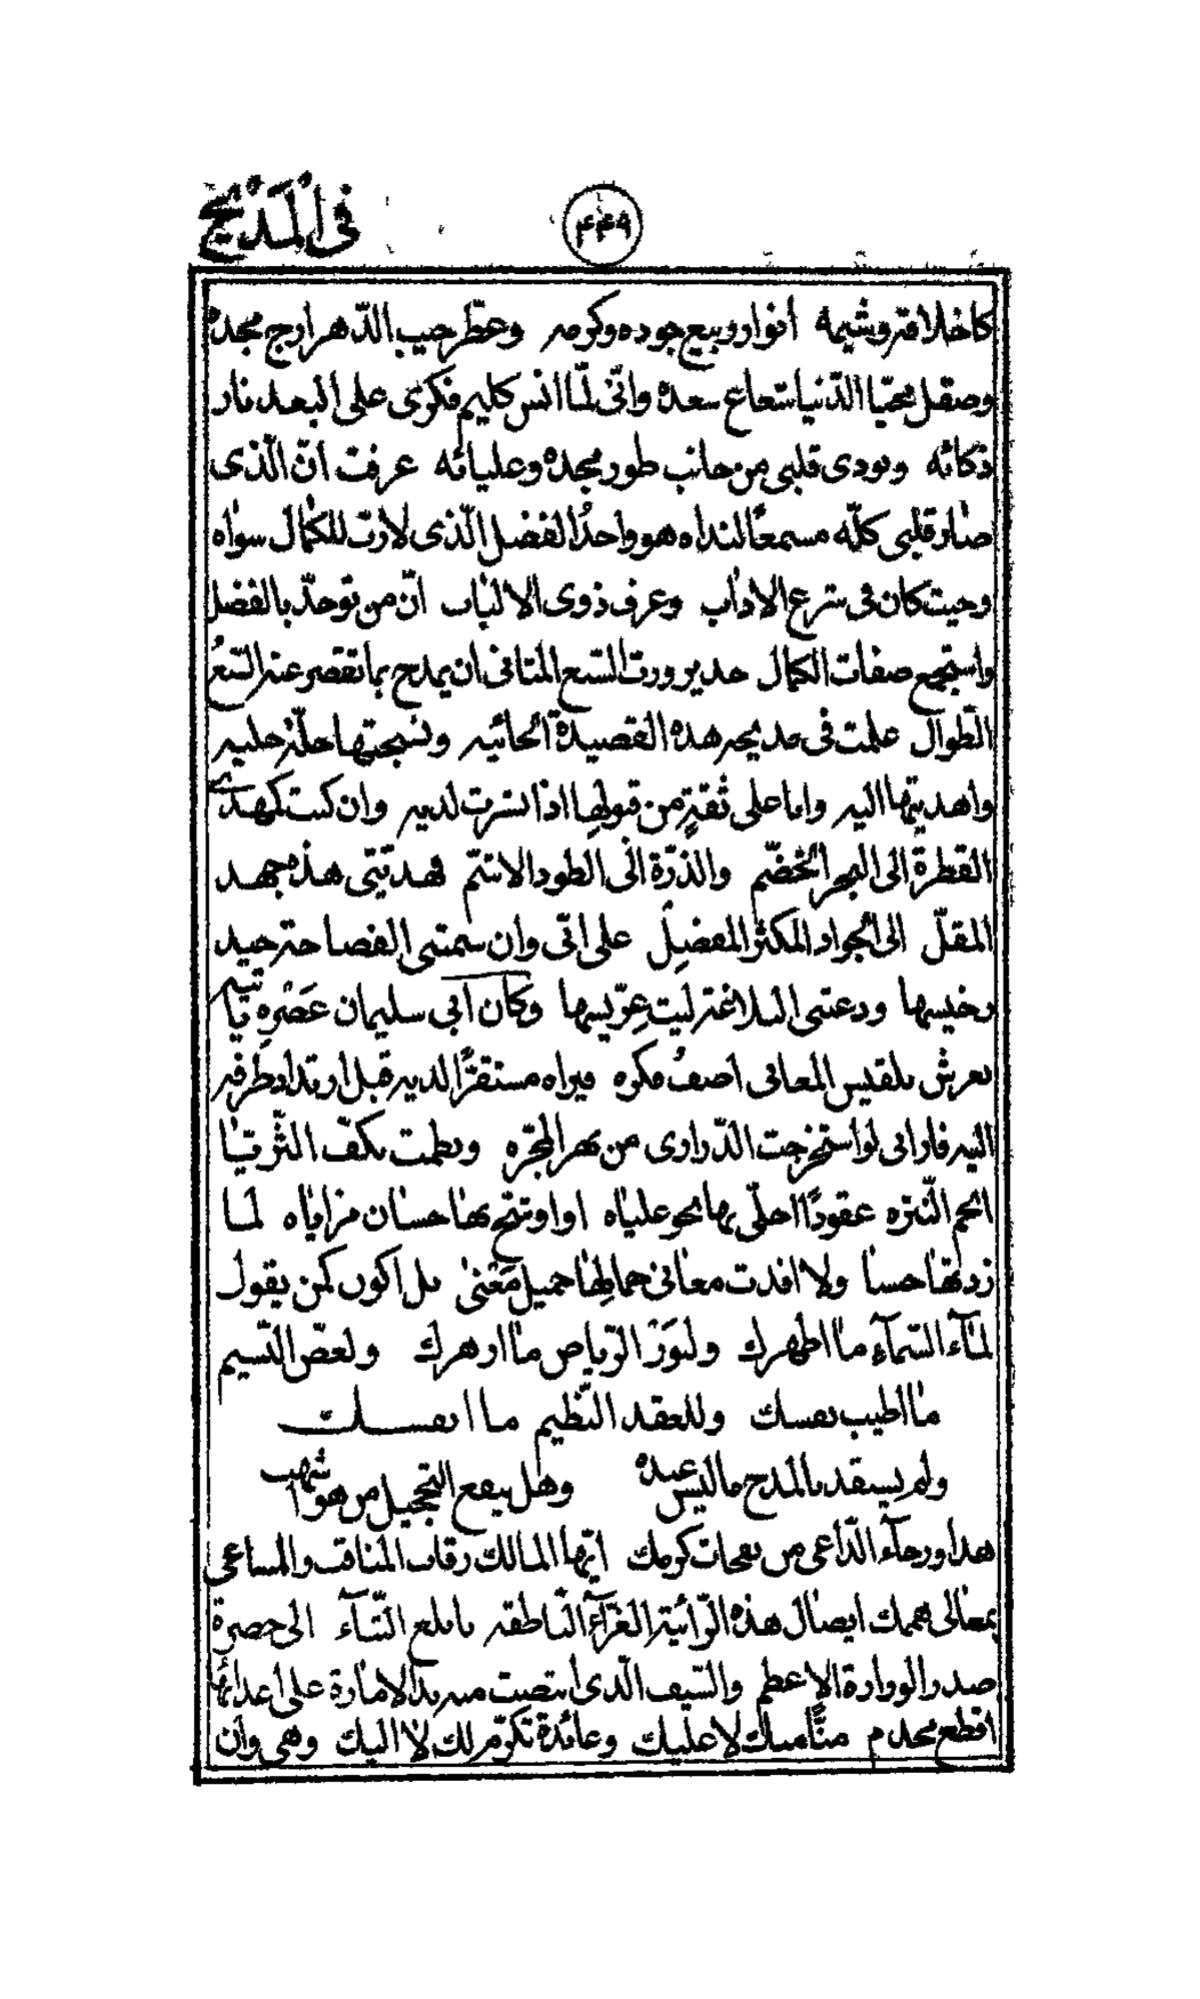 فى المديح
٤٤٩
كاخلاقه وشيمه انوار ربيع جوده وكرمه وعطّر جيب الدّهر أرج مجده
وصقل محيّا الدّنيا شعاع سعده وانّى لمّا انس كليم فكرى على البعد نار
ذكائه ونودى قلبى من جانب طور مجده وعليائه عرفت انّ الّذى
صار قلبى كلّه مسمعًا لنداه هو واحدُ الفضل الّذى لا ربّ للكمال سواه
وحيث كان فى شرع الاداب وعرف ذوى الالباب انّ من توحّد بالفضل
واستجمع صفات الكمال جدير ورب السّبع المثانى ان يمدح بما تقصر عنه السّبعُ
الطّوال علمت فى مديحه هذه القصيدة الحائيه ونسجتها حلّة حليه
واهديتها اليه وانا على ثقةٍ من قبولها اذا نشرت لديه وان كنت كمهدى
القطرة الى البحر الخضمّ والذرّة الى الطود الاشمّ فهديّتى هذه جهد
المقلّ الى الجواد المكثر المفضِل على انّى وان سمتنى الفصاحة حيد
رخيسها ودعتنى البلاغة ليث عِرّيسها وكان ابى سليمان عَصْرِه ياتيه
بعرش بلقيس المعانى اصفُ فكره فيراه مستقرًّا لديه قبل ارتداد طرفه
اليه فارانى لو استخرجت الدّرارى من نهر المجرّه ونظمت بكفّ الثّريّا
انجم النّثره عقودًا احلّى بها نحو علياه او اوشّح بها حسان مزاياه لما
زدتها حسنا ولا افدت معانى جمالها جميل مَعْنىٰ بل اكون كمن يقول
لمآء السّمآء ما اطهرك ولنَوْر الرّياض ما ازهرك ولغضّ النّسيم
ما اطيب نفسك وللعقد النّظيم ما انفسك
ولم يستفد بالمدح ما ليس عنده وهل ينفع التحجيل من هو اشهب
هذا ورجآء الدّاعى من نفحات كرمك ايّها المالك رقاب المناقب والمساعى
بمعالى هممك ايصال هذه الرّائية الغرّآء النّاطقه بابلغ الثّنآء الى حضرة
صدر الوزارة الاعظم والسّيف الّذى انتضت منه يد الامارة على اعدائها
اقطع مخذم منًّا منك لا عليك وعائدة تكرّم لك لا اليك وهى وان